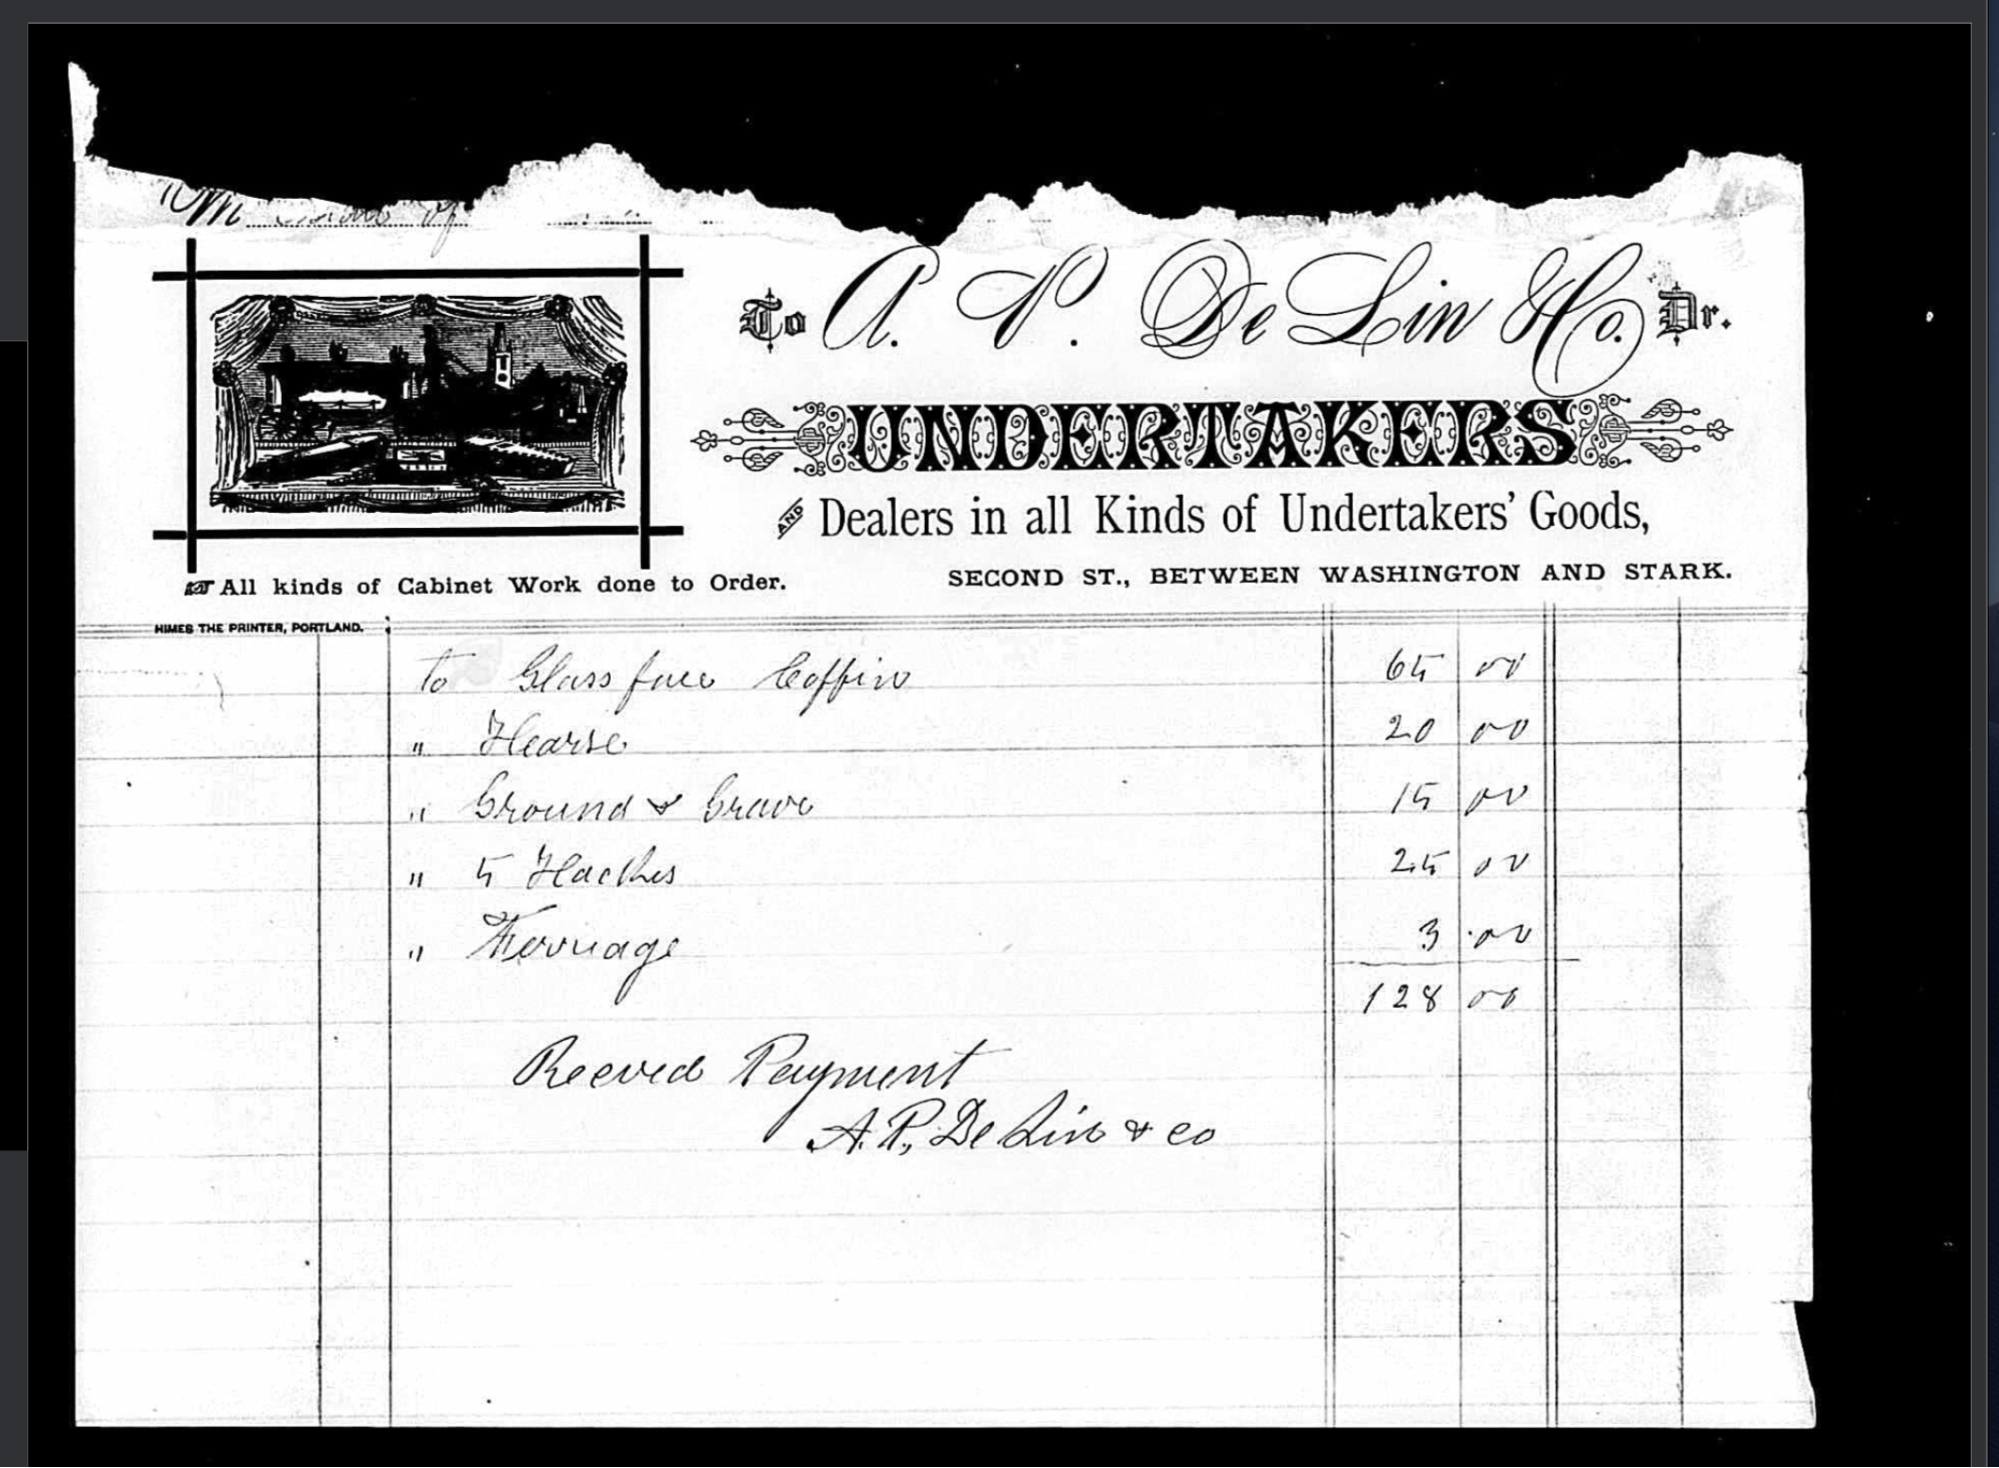 To A. P. DeLin & Co. Dr.
UNDERTAKERS
AND Dealers in all Kinds of Undertakers' Goods,
All kinds of Cabinet Work done to Order.
SECOND ST., BETWEEN WASHINGTON AND STARK.
HIMES THE PRINTER, PORTLAND.
to Glass face Coffin 65 00
" Hearse 20 00
" Ground & Grave 15 00
" 5 Hackes 25 00
" Ferriage 3 00
128 00
Receved Payment
A. P. De Lin & co